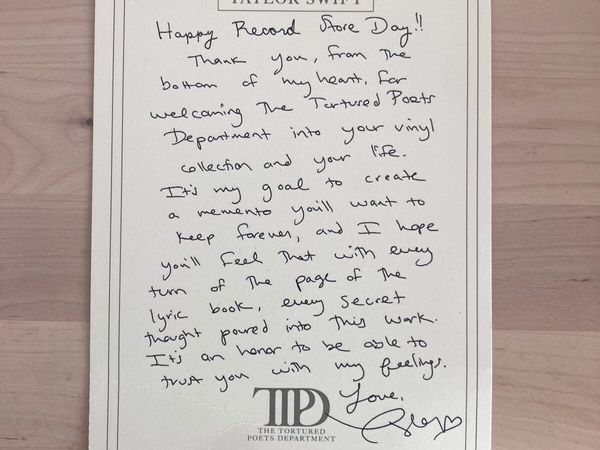 TAYLOR SWIFT
Happy Record Store Day!!
Thank you, from the
bottom of my heart, for
welcoming The Tortured Poets
Department into your vinyl
collection and your life.
It's my goal to create
a memento you'll want to
keep forever, and I hope
you'll feel that with every
turn of the page of the
lyric book, every secret
thought poured into this work.
It's an honor to be able to
trust you with my feelings.
Love,
TTPD
THE TORTURED
POETS DEPARTMENT